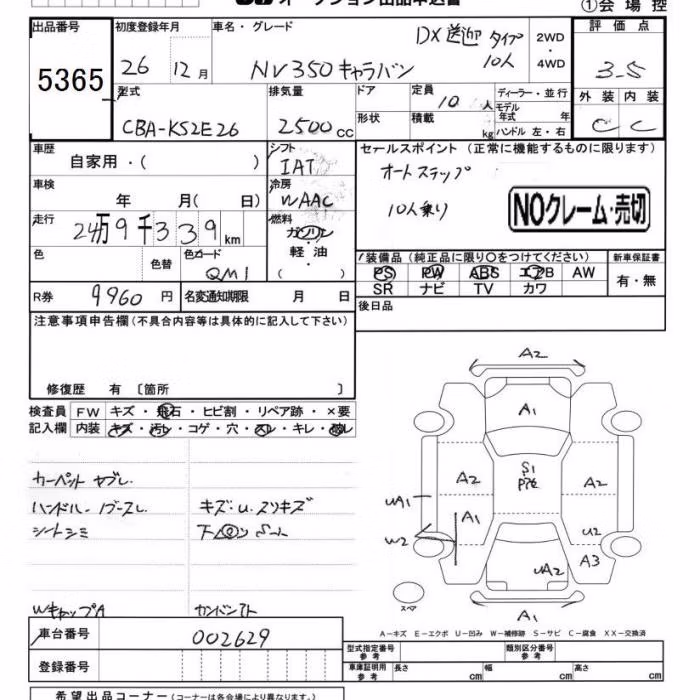 オークション出品申込書
①会場控
出品番号
5365
初度登録年月
26 12月
車名・グレード
DX送迎タイプ
10人
NV350キャラバン
2WD
・
4WD
評価点
3-5
外装 内装
C C
型式
CBA-KS2E26
排気量
2500cc
ドア
形状
定員
10人
積載
kg
ディーラー・並行
モデル
年式 年
ハンドル 左・右
車歴
自家用・( )
シフト
IAT
冷房
WAAC
車検
年 月( 日)
走行
24万9千339km
燃料
ガソリン
・
軽油
色
色替
色カード
QM1
R券 9960円
名変通知期限 月 日
セールスポイント(正常に機能するものに限ります)
オートステップ
10人乗り
NOクレーム・売切
装備品(純正品に限り○をつけてください)
PS PW ABS エアB AW
SR ナビ TV カワ
新車保証書
有・無
後日品
注意事項申告欄(不具合内容等は具体的に記入して下さい)
修復歴 有 〔箇所 〕
検査員
記入欄
FW キズ・飛石・ヒビ割・リペア跡・×要
内装 キズ・汚レ・コゲ・穴・スレ・キレ・破レ
カーペット ヤブレ
ハンドル・
シートシミ
キズ・U・スリキズ
WキャップA
A2
A1
S1
A2
A2
UA1
A1
W2
U2
A3
UA2
A1
スペア
A−キズ E−エクボ U−凹み W−補修跡 S−サビ C−腐食 XX−交換済
車台番号 002629
登録番号
型式指定番号
参考
類別区分番号
参考
車庫証明用
参考
長さ cm 幅 cm 高さ cm
希望出品コーナー(コーナーは各会場により異なります。)